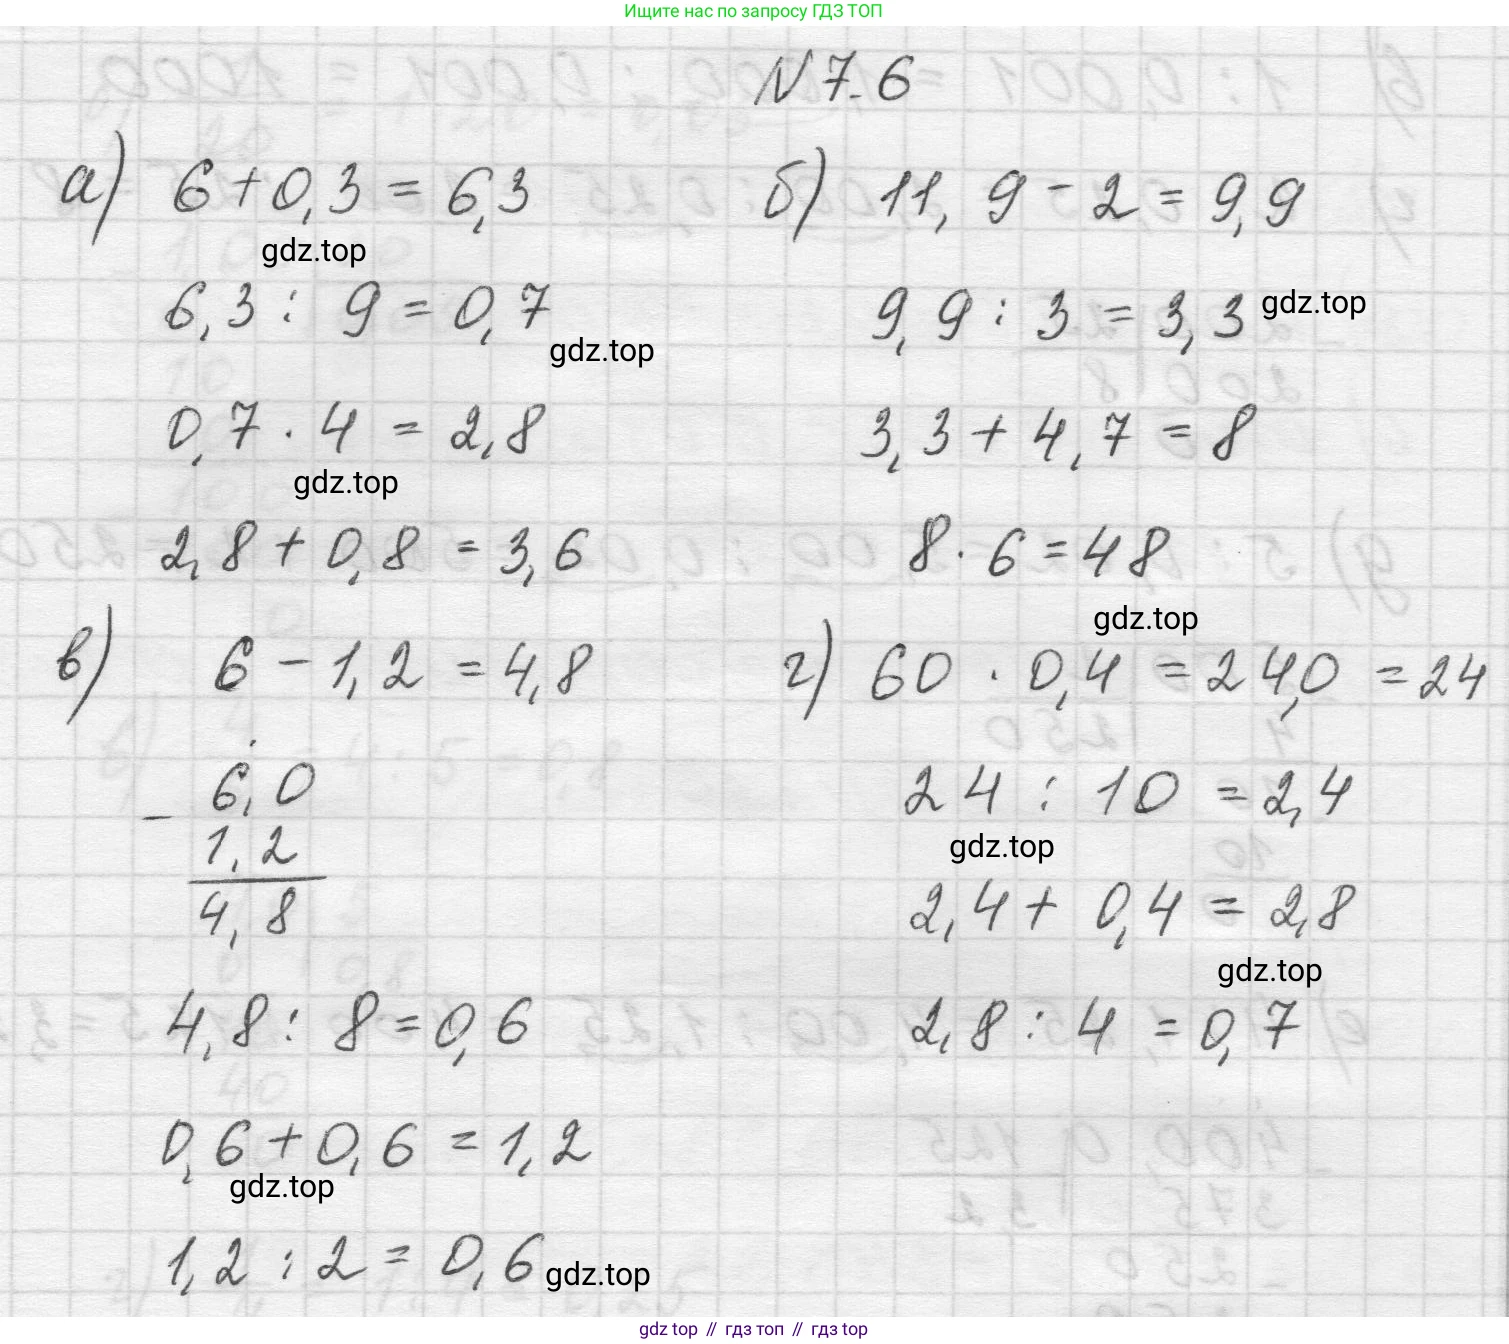 Ищите нас по запросу ГДЗ ТОП
N 7.6
а) 6 + 0,3 = 6,3
gdz.top
6,3 : 9 = 0,7
gdz.top
0,7 · 4 = 2,8
gdz.top
2,8 + 0,8 = 3,6
б) 11,9 - 2 = 9,9
9,9 : 3 = 3,3
gdz.top
3,3 + 4,7 = 8
8 · 6 = 48
gdz.top
в) 6 - 1,2 = 4,8
- 6,0
1,2
4,8
4,8 : 8 = 0,6
0,6 + 0,6 = 1,2
gdz.top
1,2 : 2 = 0,6
gdz.top
г) 60 · 0,4 = 24,0 = 24
24 : 10 = 2,4
gdz.top
2,4 + 0,4 = 2,8
gdz.top
2,8 : 4 = 0,7
gdz top // гдз топ // гдз top